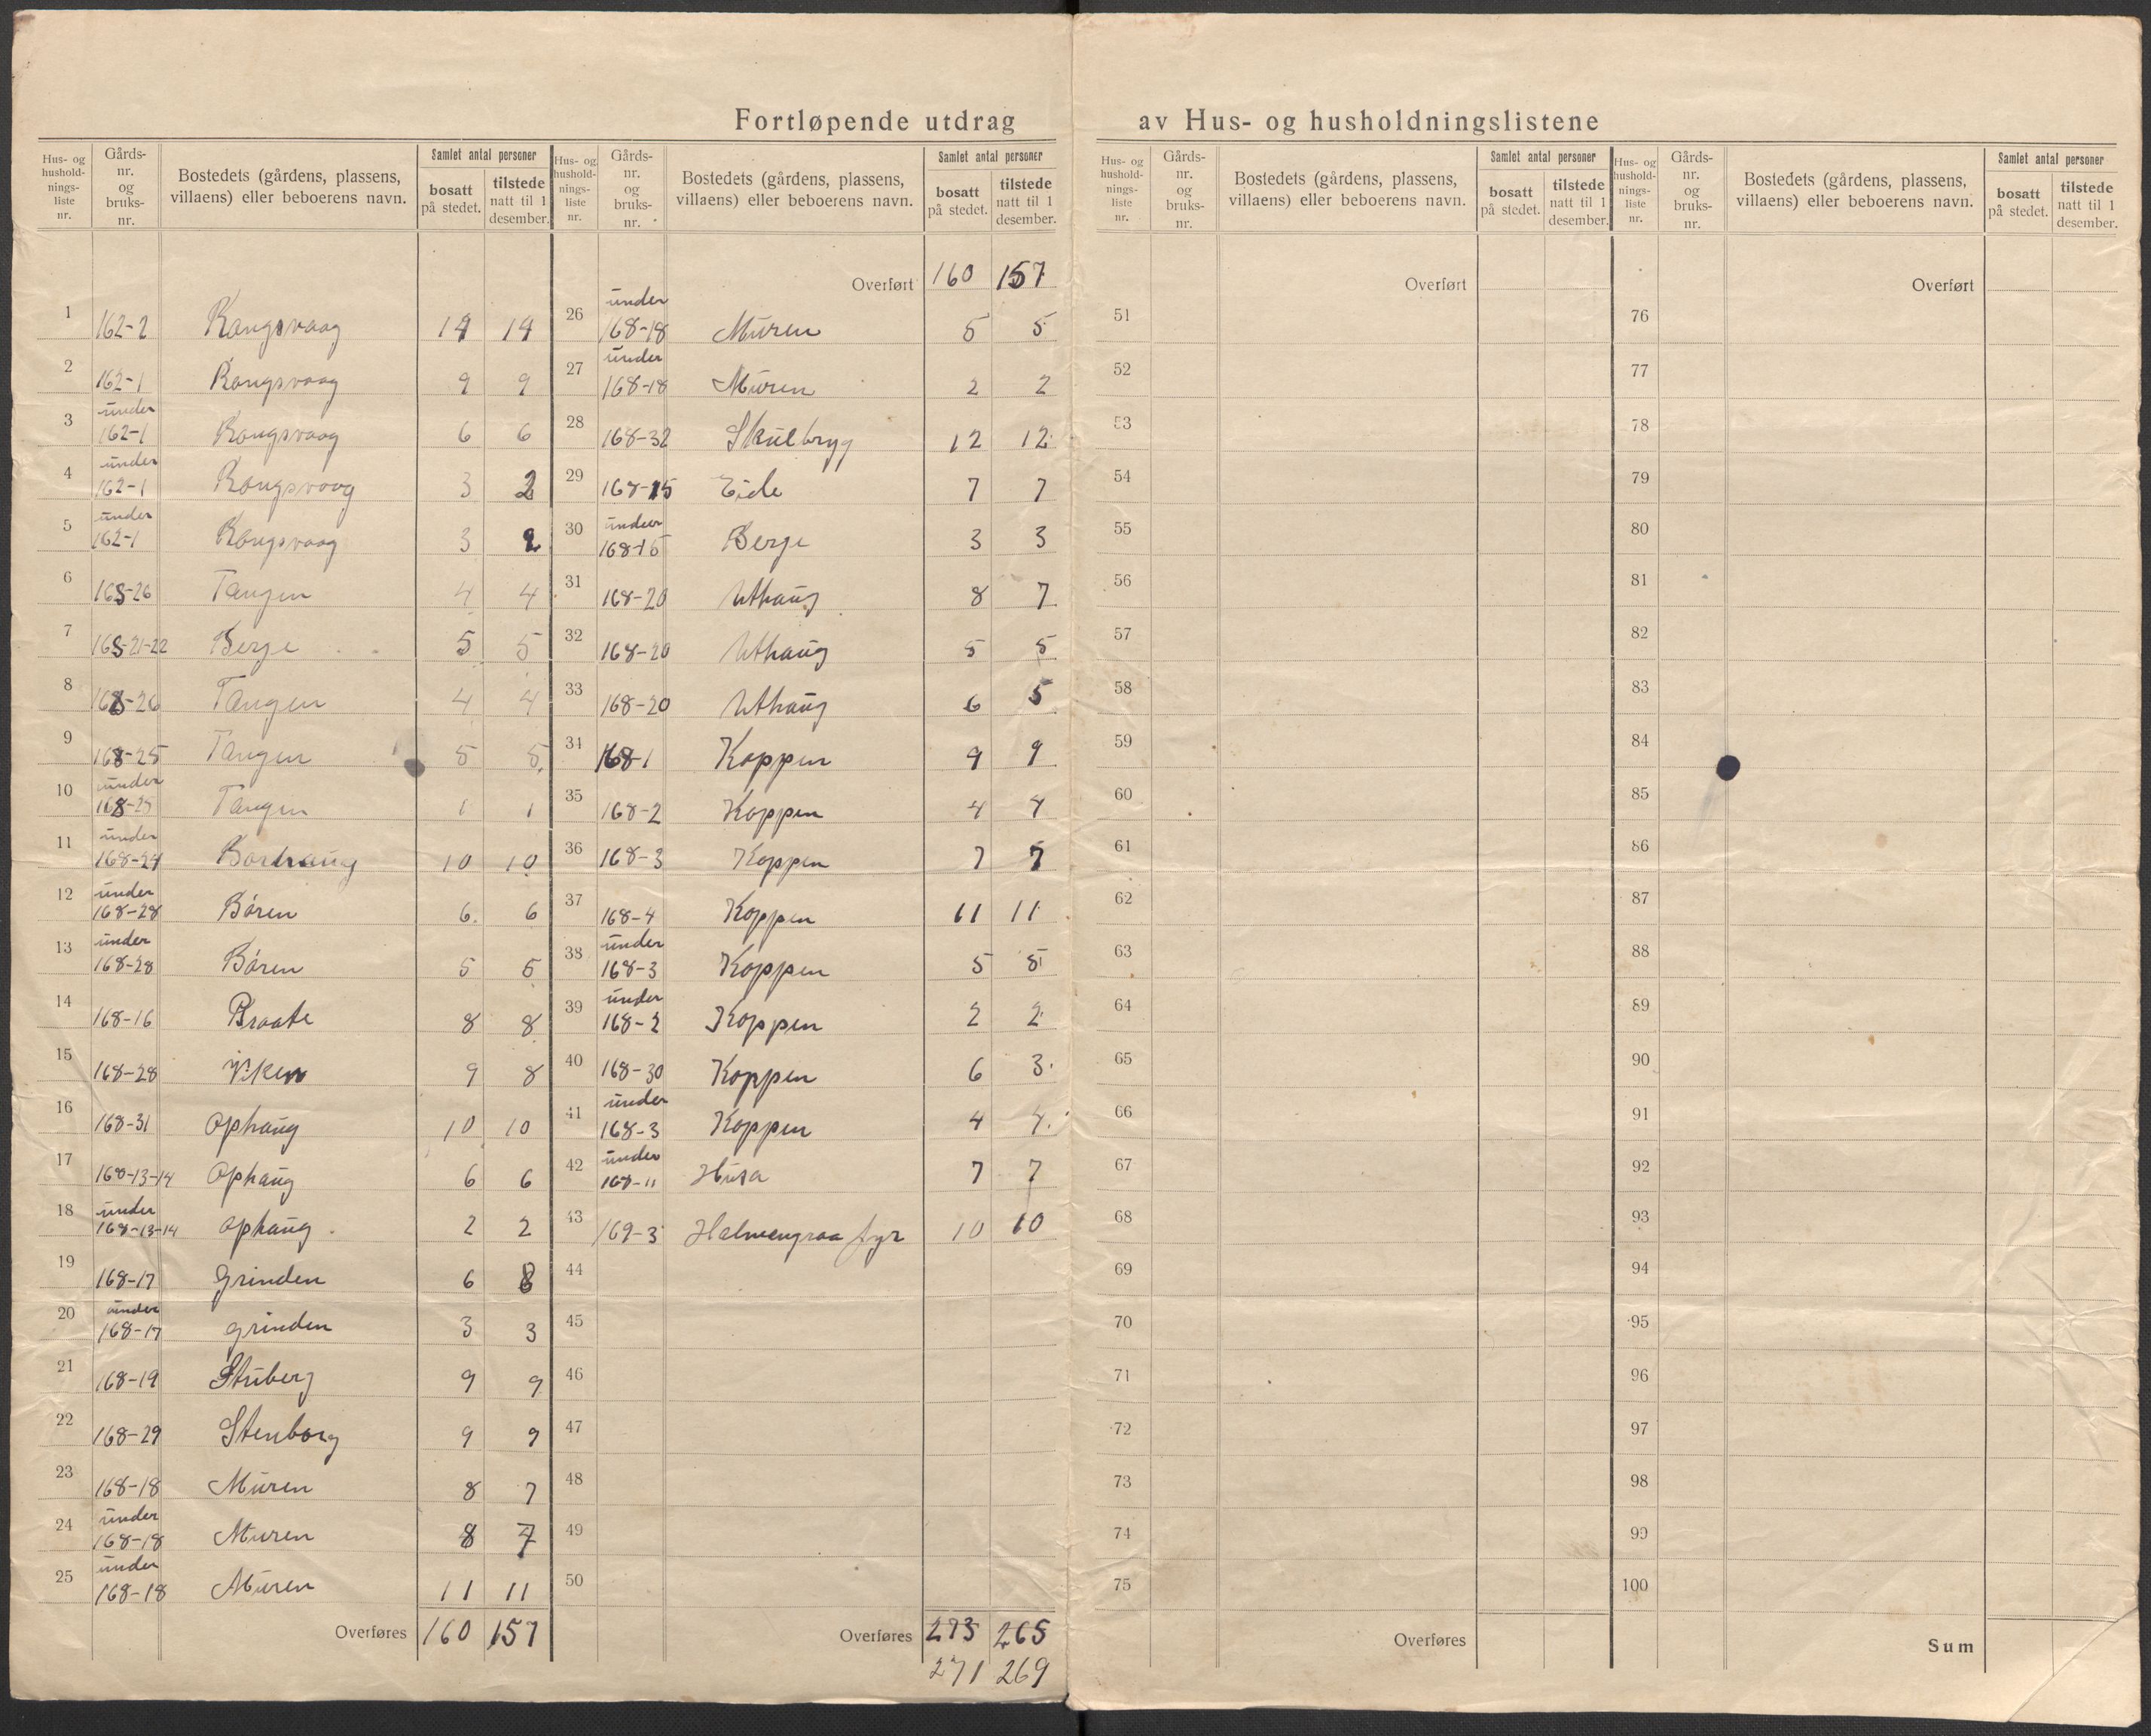 Fortløpende utdrag av Hus- og husholdningslistene
Hus- og hushold- nings- liste nr. | Gårds- nr. og bruks- nr. | Bostedets (gårdens, plassens, villaens) eller beboerens navn. | Samlet antal personer | bosatt på stedet. | tilstede natt til 1 desember.
1 162-2 Rangsvaag 14 14
2 162-1 Rangsvaag 9 9
3 under 162-1 Rangsvaag 6 6
4 under 162-1 Rangsvaag 3 2
5 under 162-1 Rangsvaag 3 2
6 168-26 Tangen 4 4
7 168-21-22 Berge 5 5
8 168-26 Tangen 4 4
9 168-25 Tangen 5 5
10 under 168-25 Tangen 1 1
11 under 168-24 Borhaug 10 10
12 under 168-28 Bören 6 6
13 under 168-28 Bören 5 5
14 168-16 Braate 8 8
15 168-28 Viken 9 8
16 168-31 Ophaug 10 10
17 168-13-14 Ophaug 6 6
18 under 168-13-14 Ophaug 2 2
19 168-17 Grinden 6 8
20 under 168-17 Grinden 3 3
21 168-19 Stuberg 9 9
22 168-29 Stenborg 9 9
23 168-18 Muren 8 7
24 under 168-18 Muren 8 7
25 under 168-18 Muren 11 11
Overføres 160 157
Hus- og hushold- nings- liste nr. | Gårds- nr. og bruks- nr. | Bostedets (gårdens, plassens, villaens) eller beboerens navn. | Samlet antal personer | bosatt på stedet. | tilstede natt til 1 desember.
Overført 160 157
26 under 168-18 Muren 5 5
27 under 168-18 Muren 2 2
28 168-32 Skulbryg 12 12
29 168-15 Eide 7 7
30 under 168-15 Berge 3 3
31 168-20 Uthaug 8 7
32 168-20 Uthaug 5 5
33 168-20 Uthaug 6 5
34 168-1 Koppen 9 9
35 168-2 Koppen 4 4
36 168-3 Koppen 7 7
37 168-4 Koppen 11 11
38 under 168-3 Koppen 5 5
39 under 168-2 Koppen 2 2
40 168-30 Koppen 6 3
41 under 168-3 Koppen 4 4
42 under 168-11 Husa 7 7
43 169-3 Halmengraa fyr 10 10
44
45
46
47
48
49
50
Overføres 273 265
271 269
Hus- og hushold- nings- liste nr. | Gårds- nr. og bruks- nr. | Bostedets (gårdens, plassens, villaens) eller beboerens navn. | Samlet antal personer | bosatt på stedet. | tilstede natt til 1 desember.
Overført
51
52
53
54
55
56
57
58
59
60
61
62
63
64
65
66
67
68
69
70
71
72
73
74
75
Overføres
Hus- og hushold- nings- liste nr. | Gårds- nr. og bruks- nr. | Bostedets (gårdens, plassens, villaens) eller beboerens navn. | Samlet antal personer | bosatt på stedet. | tilstede natt til 1 desember.
Overført
76
77
78
79
80
81
82
83
84
85
86
87
88
89
90
91
92
93
94
95
96
97
98
99
100
Sum